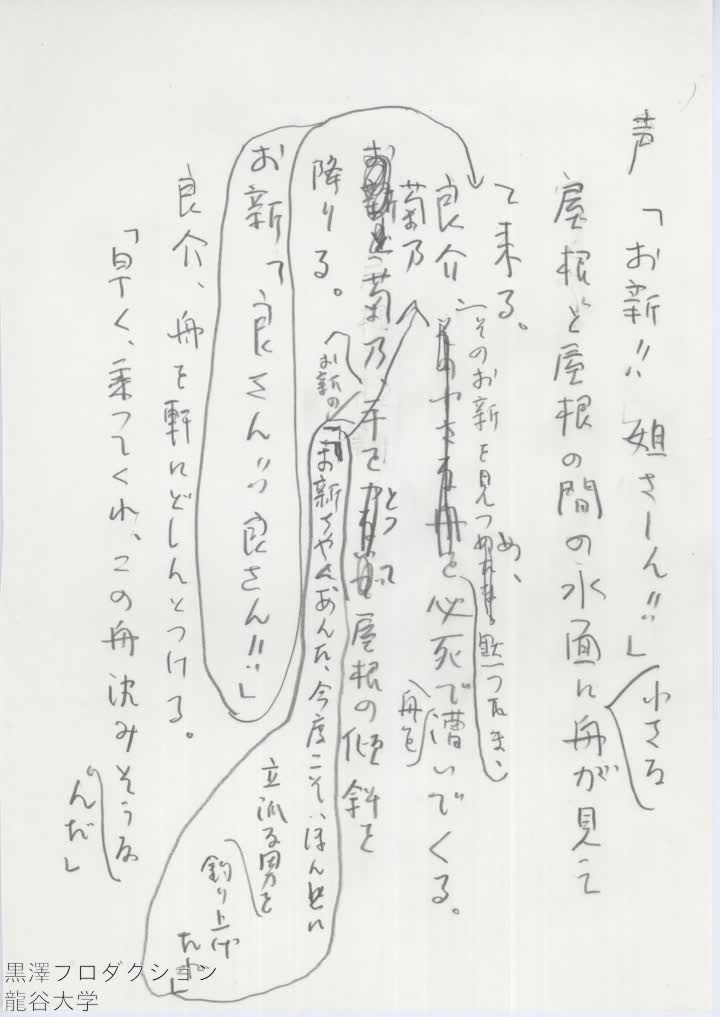 声「お新!! 姐さーん!!」
屋根と屋根の間の水面に小さな舟が見え
て来る。
良介、そのお新を見つめ、黙つたまゝ
必死で舟を漕いでくる。
菊乃
菊乃、手をとつて屋根の傾斜を
降りる。
お新の
「お新ちやん、あんた、今度こそ、ほんとに
立派な男を
釣り上げ
たね」
お新「良さん!! 良さん!!」
良介、舟を軒にどしんとつける。
「早く、乗つてくれ、この舟沈みそうな
んだ」
黒澤プロダクション
龍谷大学